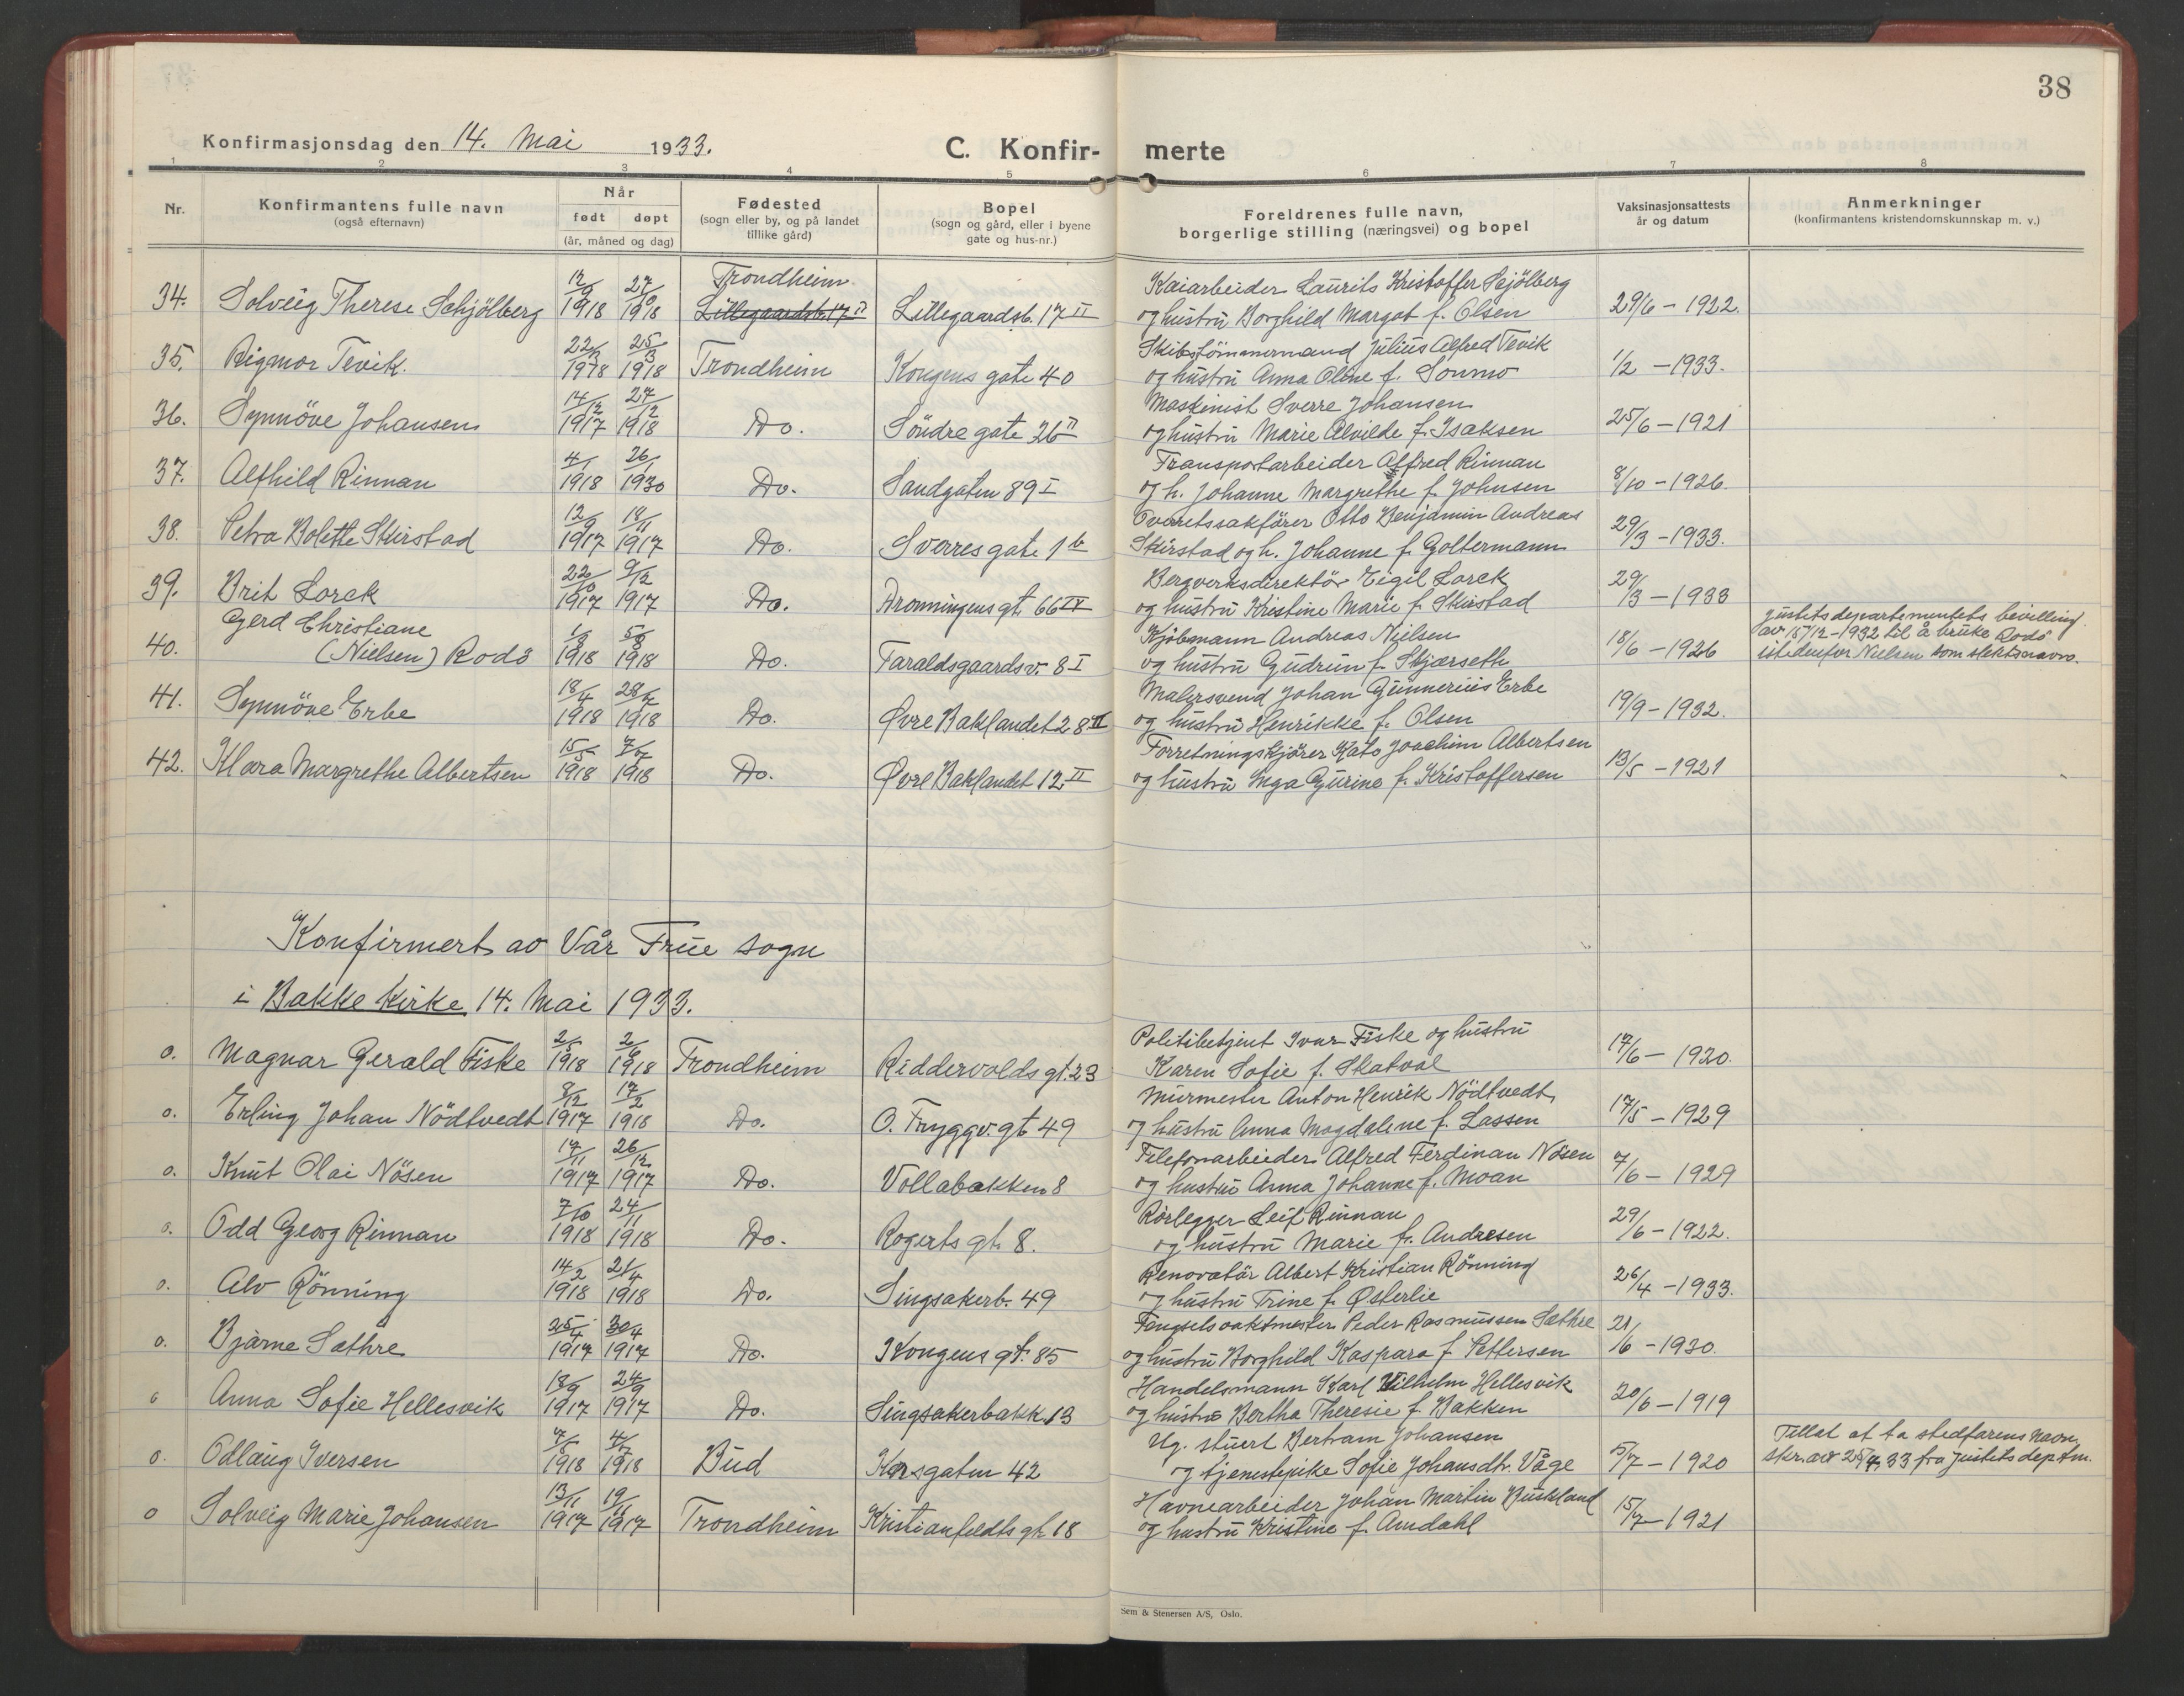 38
Konfirmasjonsdag den 14. Mai 1933.
C. Konfir- merte
1 2 3 4 5 6 7 8
Nr.
Konfirmantens fulle navn
(også efternavn)
Når
født døpt
(år, måned og dag)
Fødested
(sogn eller by, og på landet
tillike gård)
Bopel
(sogn og gård, eller i byene
gate og hus-nr.)
Foreldrenes fulle navn,
borgerlige stilling (næringsvei) og bopel
Vaksinasjonsattests
år og datum
Anmerkninger
(konfirmantens kristendomskunnskap m. v.)
Trondheim Kaiarbeider Laurits Kristoffer Scjölberg
34. Solveig Therese Schjölberg 1918 1918 Lillegaardsb. 17 II Lillegaardsb. 17 II og hustru Borghild Margot f. Olsen 29/6 - 1922.
22/3 25/3 Skibstömmermand Julius Alfred Tevik
35. Rigmor Tevik. 1918 1918 Trondheim Kongens gate 40 og hustru Anna Oline f. Sommo 1/2 - 1933.
14/12 27/2 Maskinist Sverre Johansen
36. Synnöve Johansen 1917 1918 Do. Söndre gate 26 II og hustru Marie Alvilde f. Isaksen 25/6 - 1921
4/1 26/1 Transportarbeider Alfred Rinnan
37. Alfhild Rinnan 1918 1930 Do. Sandgaten 89 I og h. Johanne Margrethe f. Johnsen 8/10 - 1926.
12/9 18/11 Overretssakförer Otto Benjamin Andreas
38. Petra Bolette Skirstad 1917 1917 Do. Sverres gate 1 b Skirstad og h. Johanne f. Goltermann 29/3 - 1933.
22/10 9/12 Bergverksdirektör Eigil Lorck
39. Brit Lorck 1917 1917 Do. Dronningens gt. 66 IV og hustru Kristine Marie f. Skirstad 29/3 - 1933
Gerd Christiane Kjöbmann Andreas Nielsen Justitsdepartementets bevilling
av 15/12 - 1932 til å bruke Rodö
40. (Nielsen) Rodö 1918 1918 Do. Taraldsgaardsv. 8 I og hustru Gudrun f. Skjærseth 18/6 - 1926 istedenfor Nielsen som slektsnavn.
18/4 28/7 Malersvend Johan Gunnerius Erbe
41. Synnöve Erbe 1918 1918 Do. Øvre Baklandet 28 II og hustru Henrikke f. Olsen 19/9 - 1932.
15/5 7/7 Forretningskjörer Kato Joachim Albertsen
42. Klara Margrethe Albertsen 1918 1918 Do. Øvre Baklandet 12 II og hustru Inga Gurine f. Kristoffersen 13/5 - 1921
Konfirmert av Vår Frue sogn
i Bakke kirke 14. Mai 1933.
2/5 2/6 Politibetjent Ivar Fiske og hustru
o. Magnar Gerald Fiske 1918 1918 Trondheim Riddervolds gt. 23 Karen Sofie f. Skatval 17/6 - 1920.
8/12 17/2 Murmester Anton Henrik Nödtvedt
o. Erling Johan Nödtvedt 1917 1918 Do. O. Tryggv. gt 49 og hustru Anna Magdalene f. Lassen 17/5 - 1929
17/11 26/12 Telefonarbeider Alfred Ferdinan Nösen
o. Knut Olai Nösen 1917 1917 Do. Vollabakken 8 og hustru Anna Johanne f. Moan 7/6 - 1929
7/10 24/11 Rörlegger Leif Rinnan
o. Odd Georg Rinnan 1918 1918 Do. Rogerts gt. 8. og hustru Marie f. Andresen 29/6 - 1922.
14/2 21/4 Renovatör Albert Kristian Rönning
o. Alv Rönning 1918 1918 Do. Singsakerb. 49 og hustru Trine f. Østerlie 26/4 - 1933.
25/4 30/4 Fengselsvaktmester Peder Rasmussen Sæthre
o. Bjarne Sæthre 1917 1917 Do. Kongens gt. 85 og hustru Borghild Kaspara f. Pettersen 21/6 - 1930.
18/9 24/9 Handelsmann Karl Vilhelm Hellesvik
o Anna Sofie Hellesvik 1917 1917 Do. Singsakerbakk. 13 og hustru Bertha Theresie f. Bakken 20/6 - 1919
Ug. stuert Bertram Johansen Tillat at ta stedfarens navn,
o. Odlaug Iversen 1918 1918 Bud Korsgaten 42 og tjenestepike Sofie Johansdtr. Våge 5/7 - 1920 skr. av 25/4 33 fra Justitsdeptm.
13/11 Havnearbeider Johan Martin Buskland
o Solveig Marie Johansen 1917 1917 Trondheim Kristianfeldts gt. 18 og hustru Kristine f. Amdahl 15/7 - 1921
Sem & Stenersen A/S, Oslo.